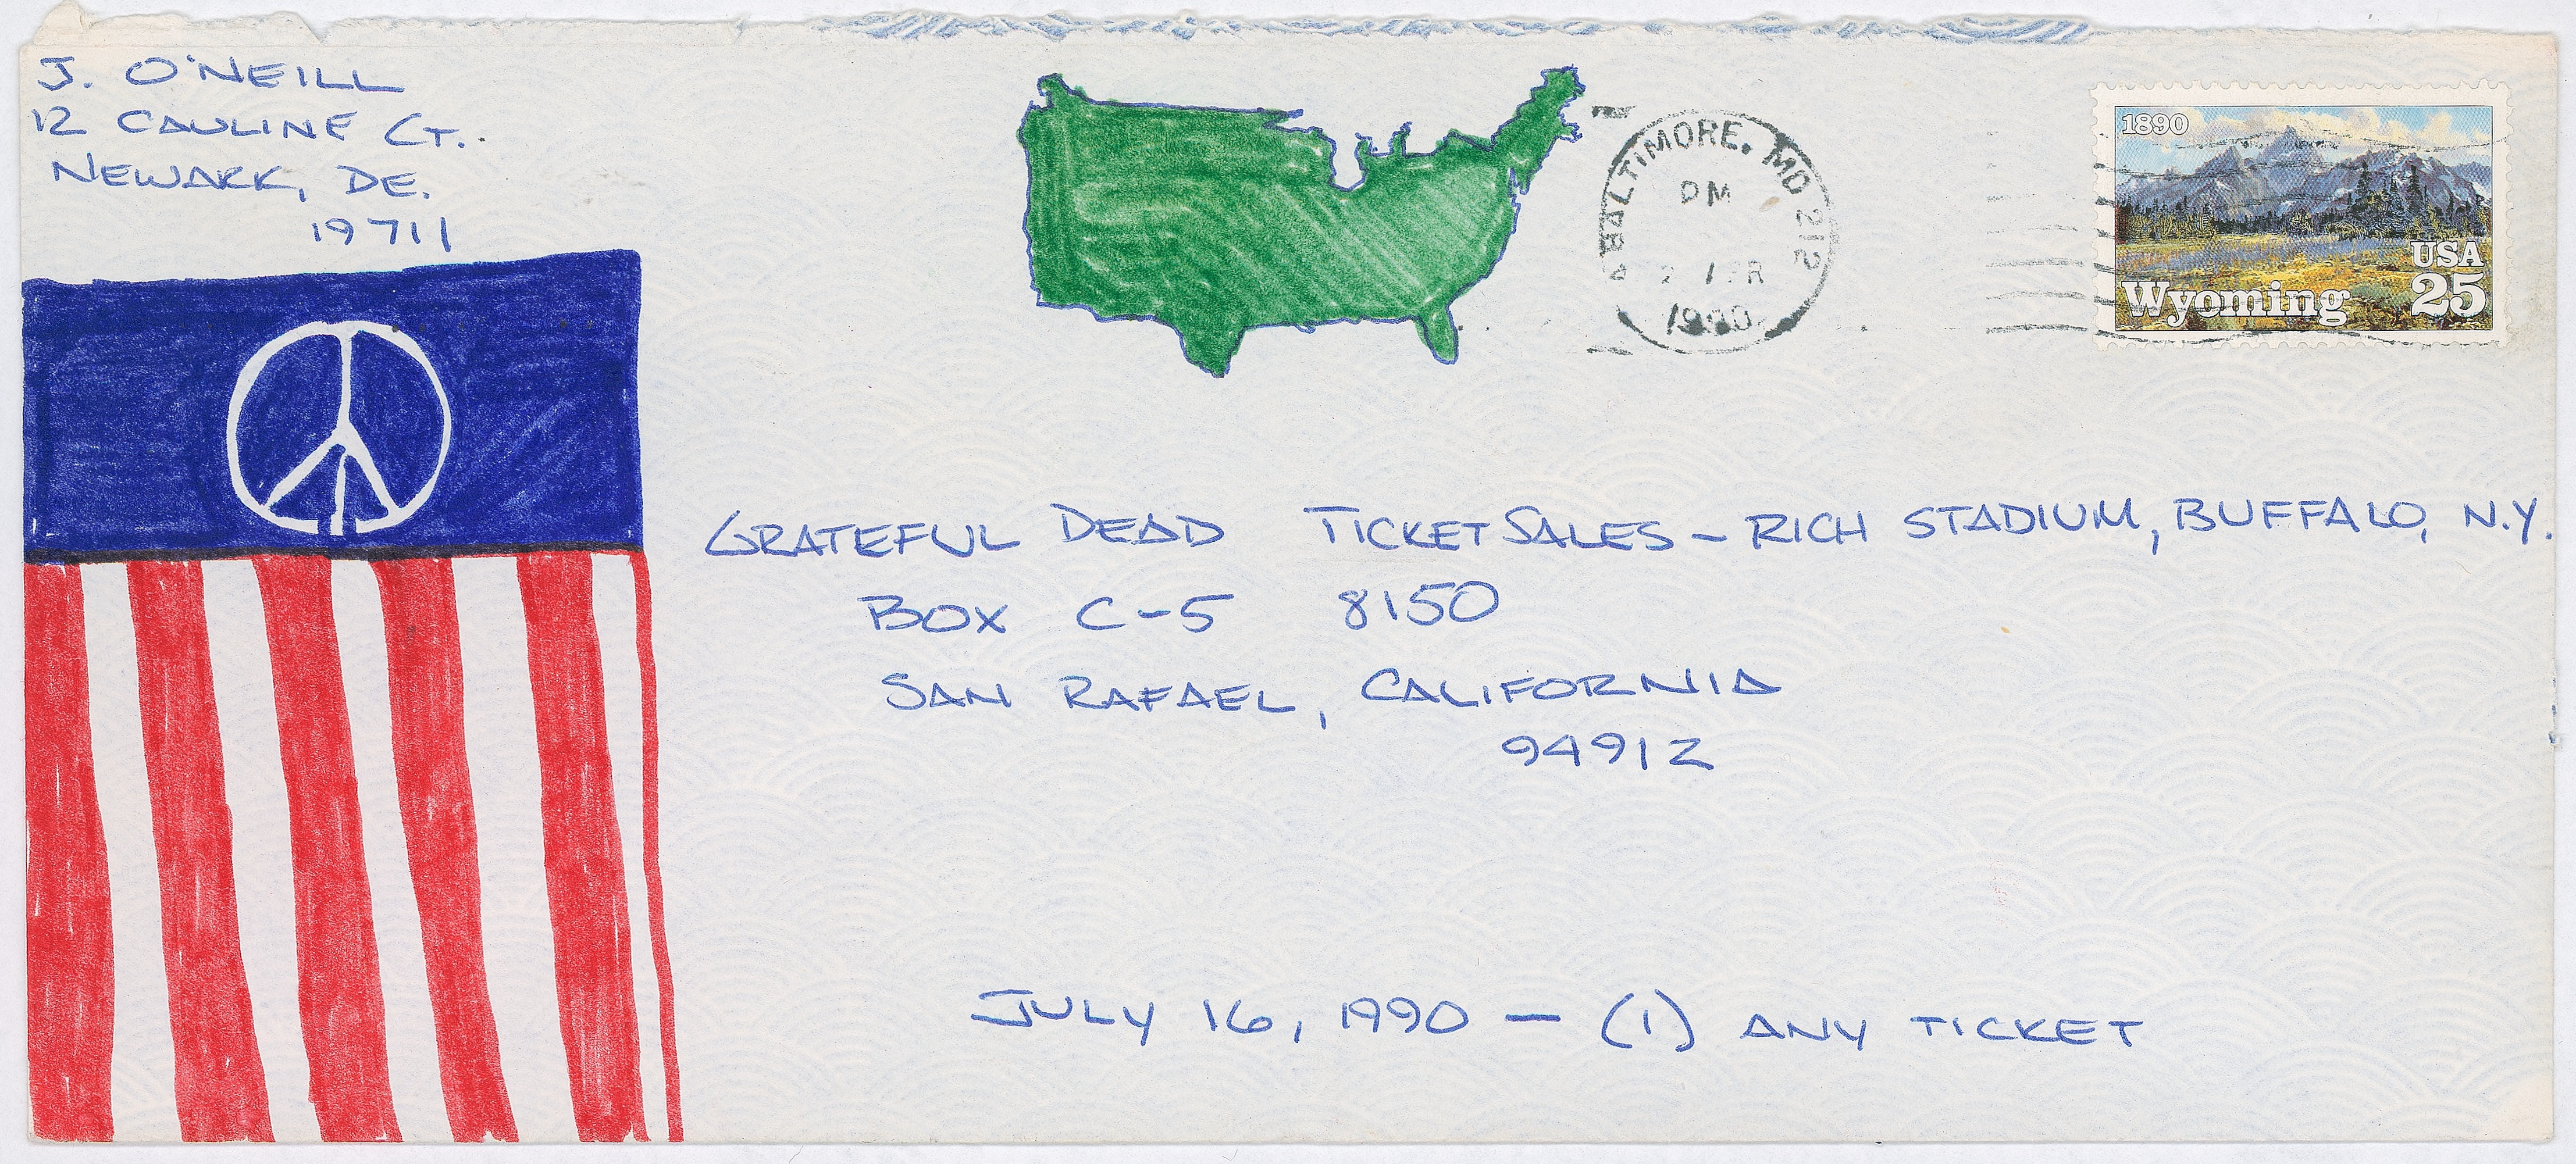 J. O'NEILL
12 CAULINE CT.
NEWARK, DE.
19711
BALTIMORE. MD 212
PM
1990
1890
USA
25
Wyoming
GRATEFUL DEAD TICKET SALES - RICH STADIUM, BUFFALO, N.Y.
BOX C-5 8150
SAN RAFAEL, CALIFORNIA
94912
JULY 16, 1990 - (1) ANY TICKET